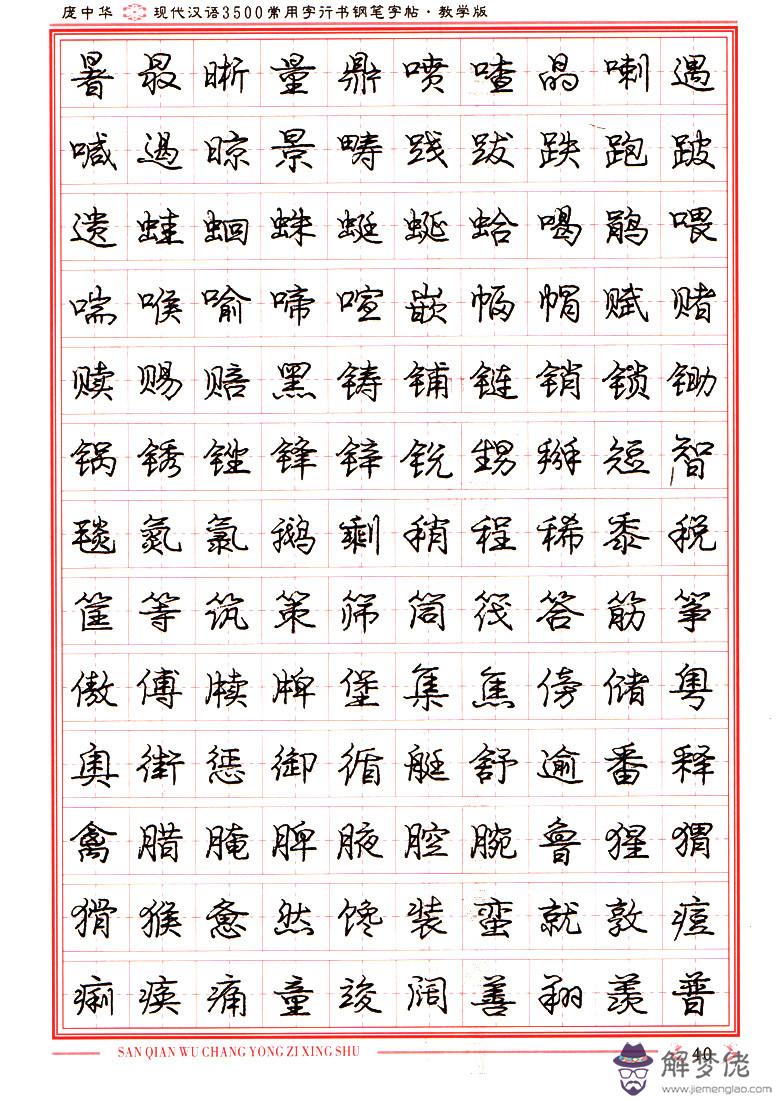 庞中华 现代汉语3500常用字行书钢笔字帖·教学版
暑最晰量鼎喷喳晶喇遇
喊遏晾景畴践跋跌跑跛
遗蛙蛔蛛蜓蜒蛤喝鹃喂
喘喉喻啼喧嵌幅帽赋赌
赎赐赔黑铸铺链销锁锄
锅锈锉锋锌锐甥掰短智
毯氮氯鹅剩稍程稀黍税
筐等筑策筛筒筏答筋筝
傲傅牍牌堡集焦傍储粤
奥街惩御循艇舒逾番释
禽腊腌脾腋腔腕鲁猩猬
猾猴惫然馋装蛮就敦痘
痢痪痛童竣阔善翔羡普
SAN QIAN WU CHANG YONG ZI XING SHU 40
解梦佬
www.jiemenglao.com